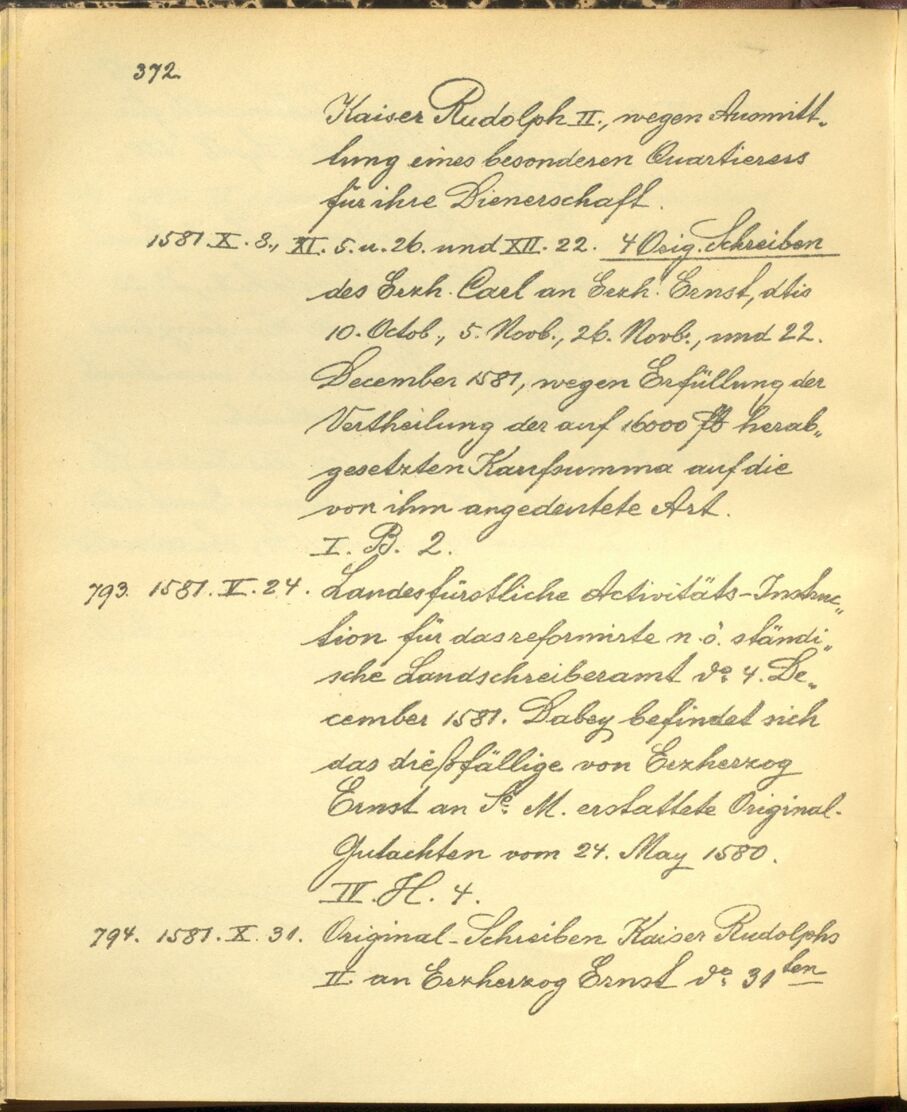 372.
Kaiser Rudolph II., wegen Ausmitt„
lung eines besonderen Quartierers
für ihre Dienerschaft.
1581. X. 8., XI. 5. u. 26. und XII. 22. 4 Orig. Schreiben
des Erzh. Carl an Erzh. Ernst, dtis
10. Octob., 5. Novb., 26. Novb., und 22.
December 1581, wegen Erfüllung der
Vertheilung der auf 16000 herab„
gesetzten Kaufsumma auf die
von ihm angedeutete Art.
I. B. 2.
793. 1581. V. 24. Landesfürstliche Activitäts-Instruc„
tion für das reformirte n. ö. ständi„
sche Landschreiberamt do 4. De„
cember 1581. Dabey befindet sich
das dießfällige von Erzherzog
Ernst an Se. M. erstattete Original-
Gutachten vom 24. May 1580.
IV. H. 4.
794. 1581. X. 31. Original-Schreiben Kaiser Rudolphs
II an Erzherzog Ernst do 31ten